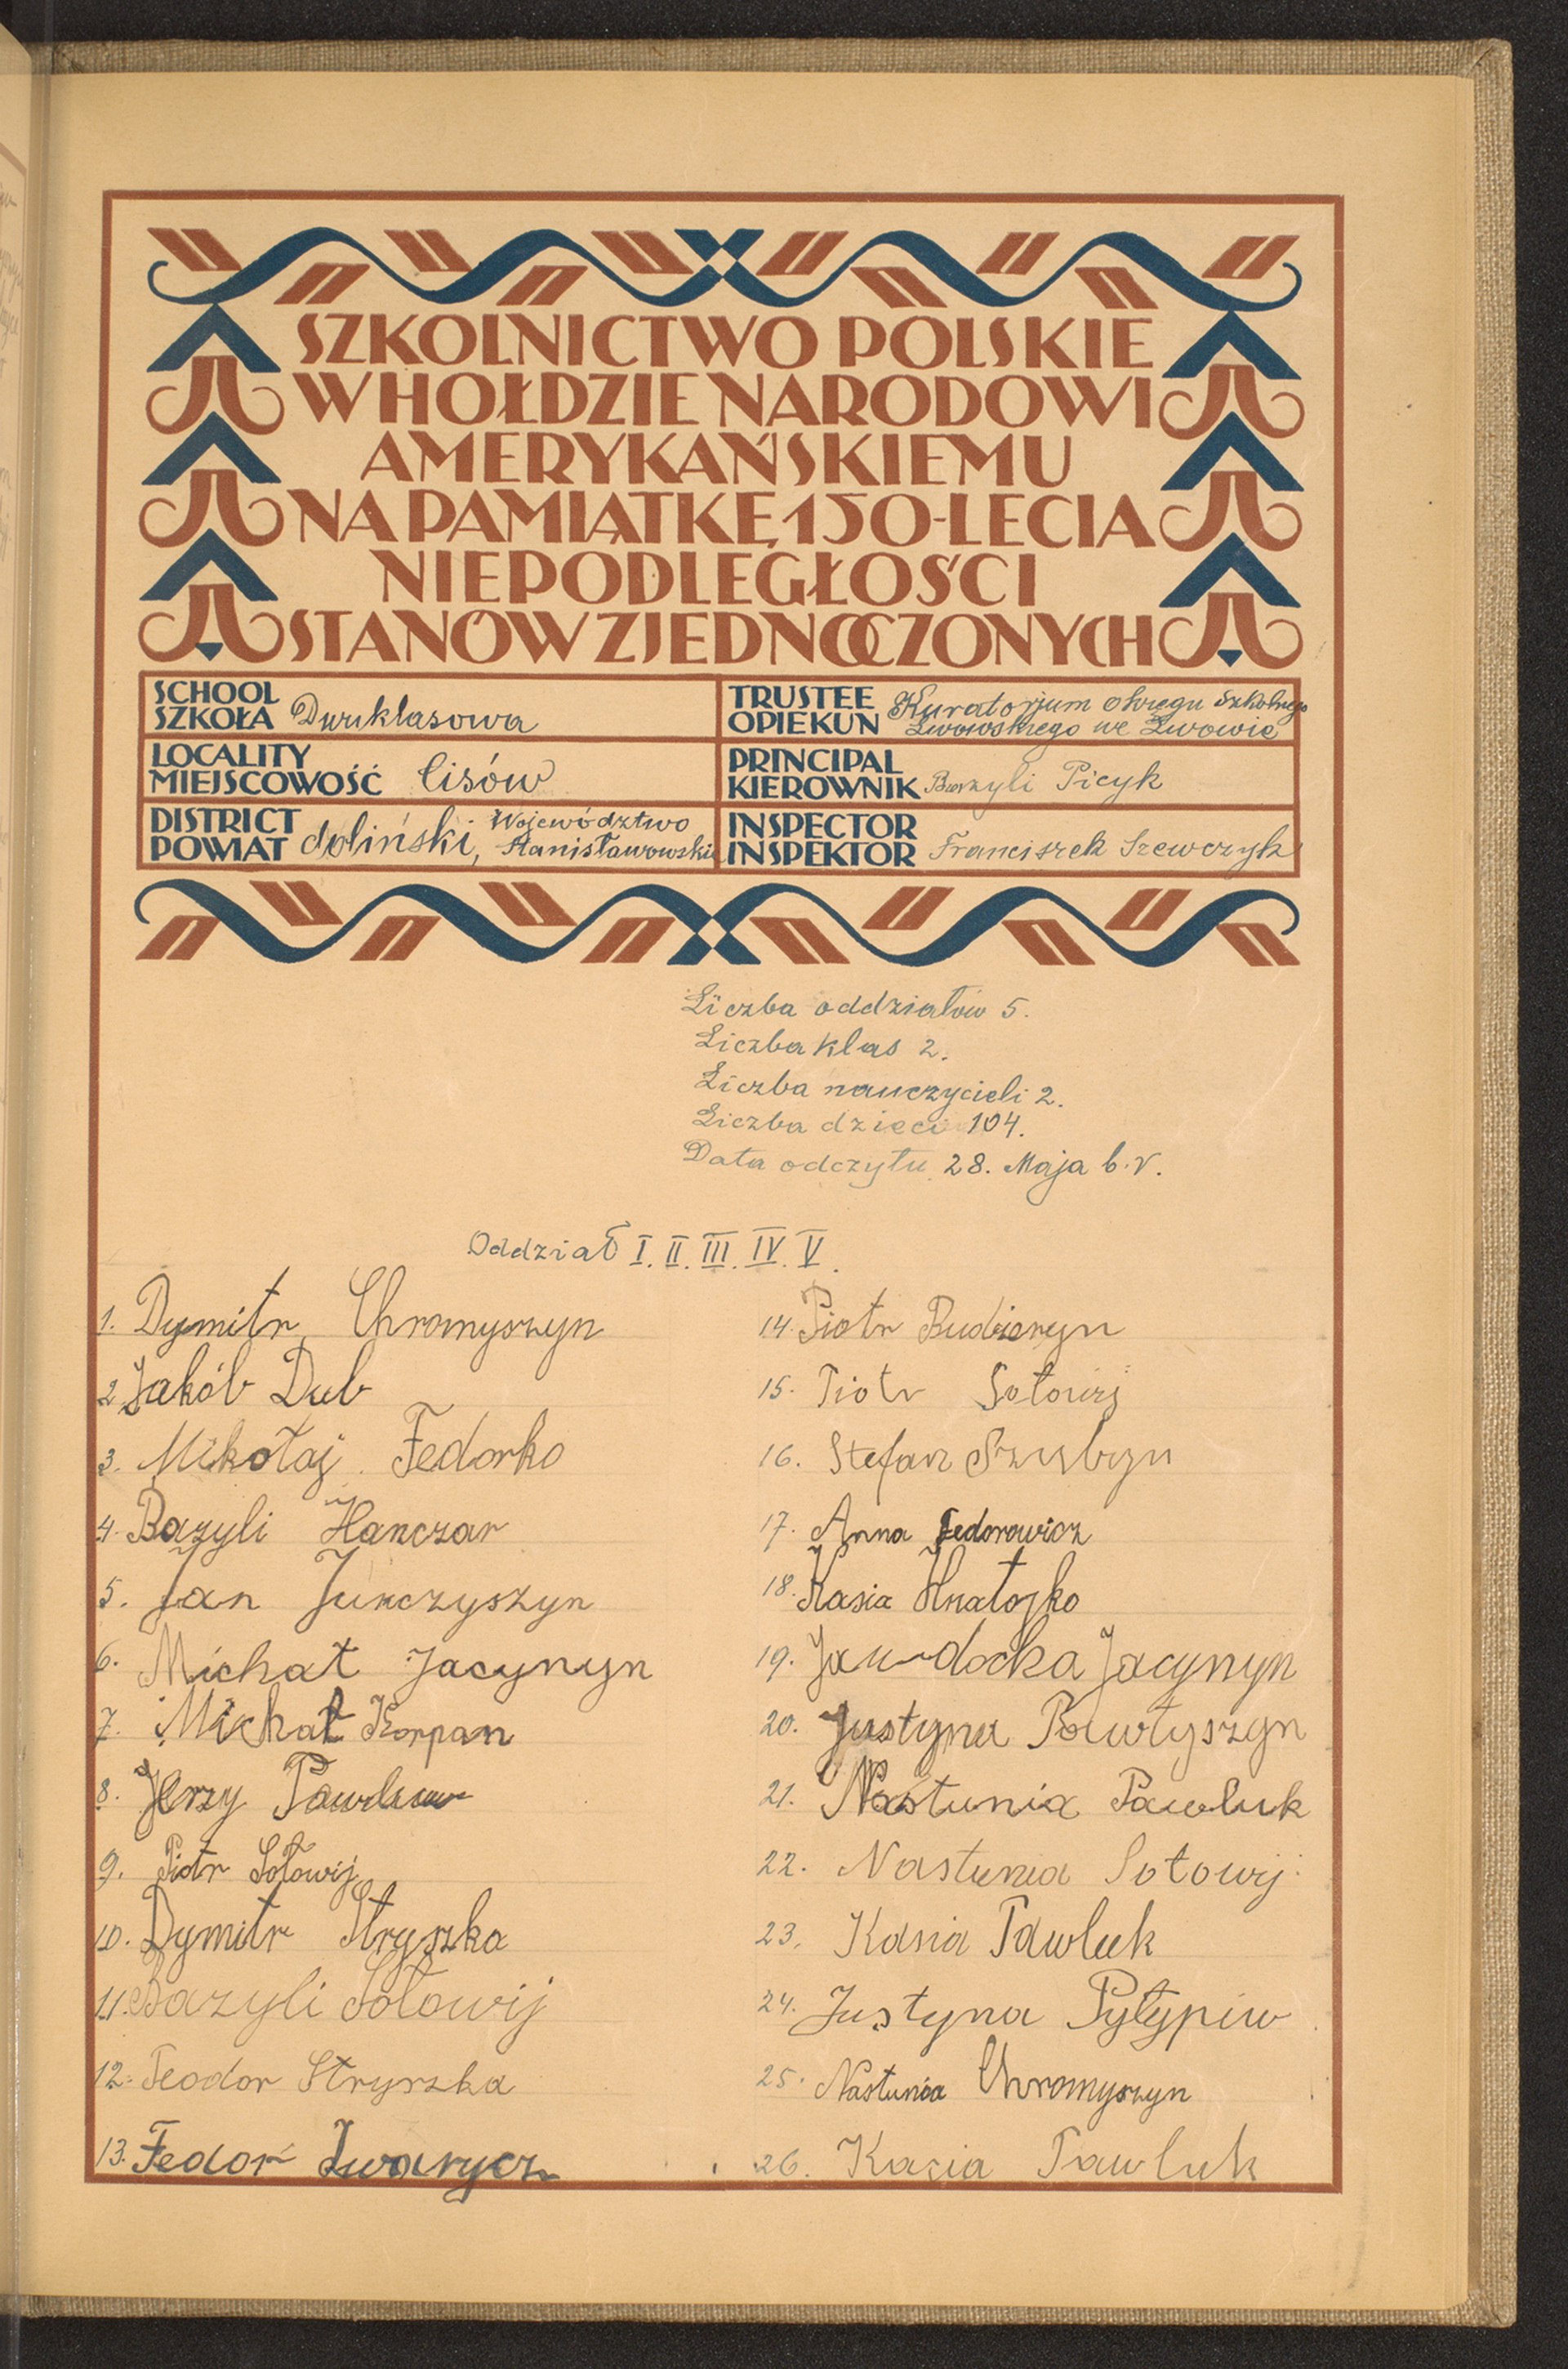 SZKOLNICTWO POLSKIE
W HOŁDZIE NARODOWI
AMERYKAŃSKIEMU
NA PAMIĄTKĘ 150-LECIA
NIEPODLEGŁOŚCI
STANÓW ZJEDNOCZONYCH
SCHOOL
SZKOŁA Dwuklasowa
TRUSTEE
OPIEKUN Kuratorjum okręgu szkolnego
Lwowskiego we Lwowie
LOCALITY
MIEJSCOWOŚĆ Lisów
PRINCIPAL
KIEROWNIK Bazyli Picyk
DISTRICT
POWIAT doliński, Województwo
Stanisławowskie
INSPECTOR
INSPEKTOR Franciszek Szewczyk
Liczba oddziałów 5.
Liczba klas 2.
Liczba nauczycieli 2.
Liczba dzieci 104.
Data odczytu 28. Maja b.r.
Oddział I. II. III. IV. V.
1. Dymitr Chromyszyn
2. Jakób Dub
3. Mikołaj Fedorko
4. Bazyli Hanczar
5. Jan Jurczyszyn
6. Michał Jacynyn
7. Michał Korpan
8. Jerzy
9. Piotr Sołowij
10. Dymitr Stryszka
11. Bazyli Sołowij
12. Teodor Stryszka
13. Fedor Iwarycz
14. Piotr
15. Piotr Sołowij
16. Stefan
17. Anna Fedorowicz
18. Kasia
19. Jawdocka Jacynyn
20. Justyna Pawłyszyn
21. Nastunia Pawluk
22. Nastunia Sołowij
23. Kasia Pawluk
24. Justyna Pyłypiw
25. Nastunia Chromyszyn
26. Kasia Pawluk